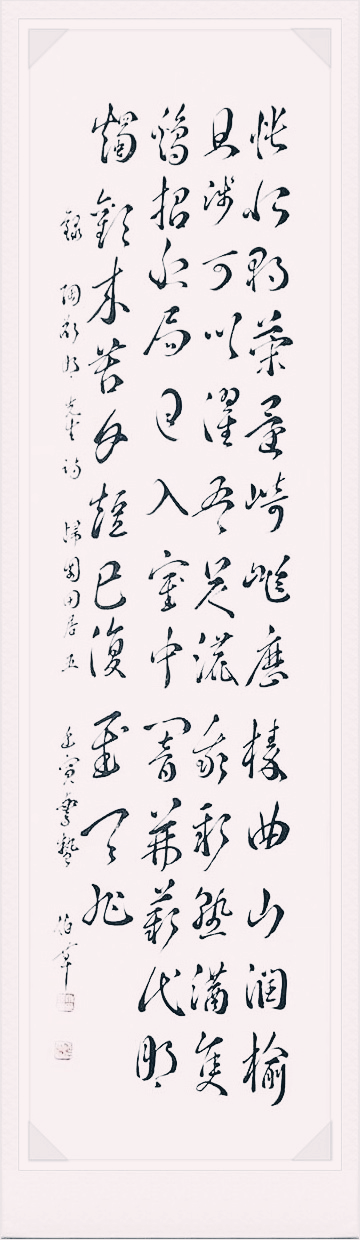 悵恨獨策還崎嶇歷榛曲山澗
且淺可以濯吾足漉我新熟隻
雞招近局日入室中闇荊薪代明
燭歡來苦夕短已復至天旭
錄 陶淵明先生詩 歸園田居五 壬寅